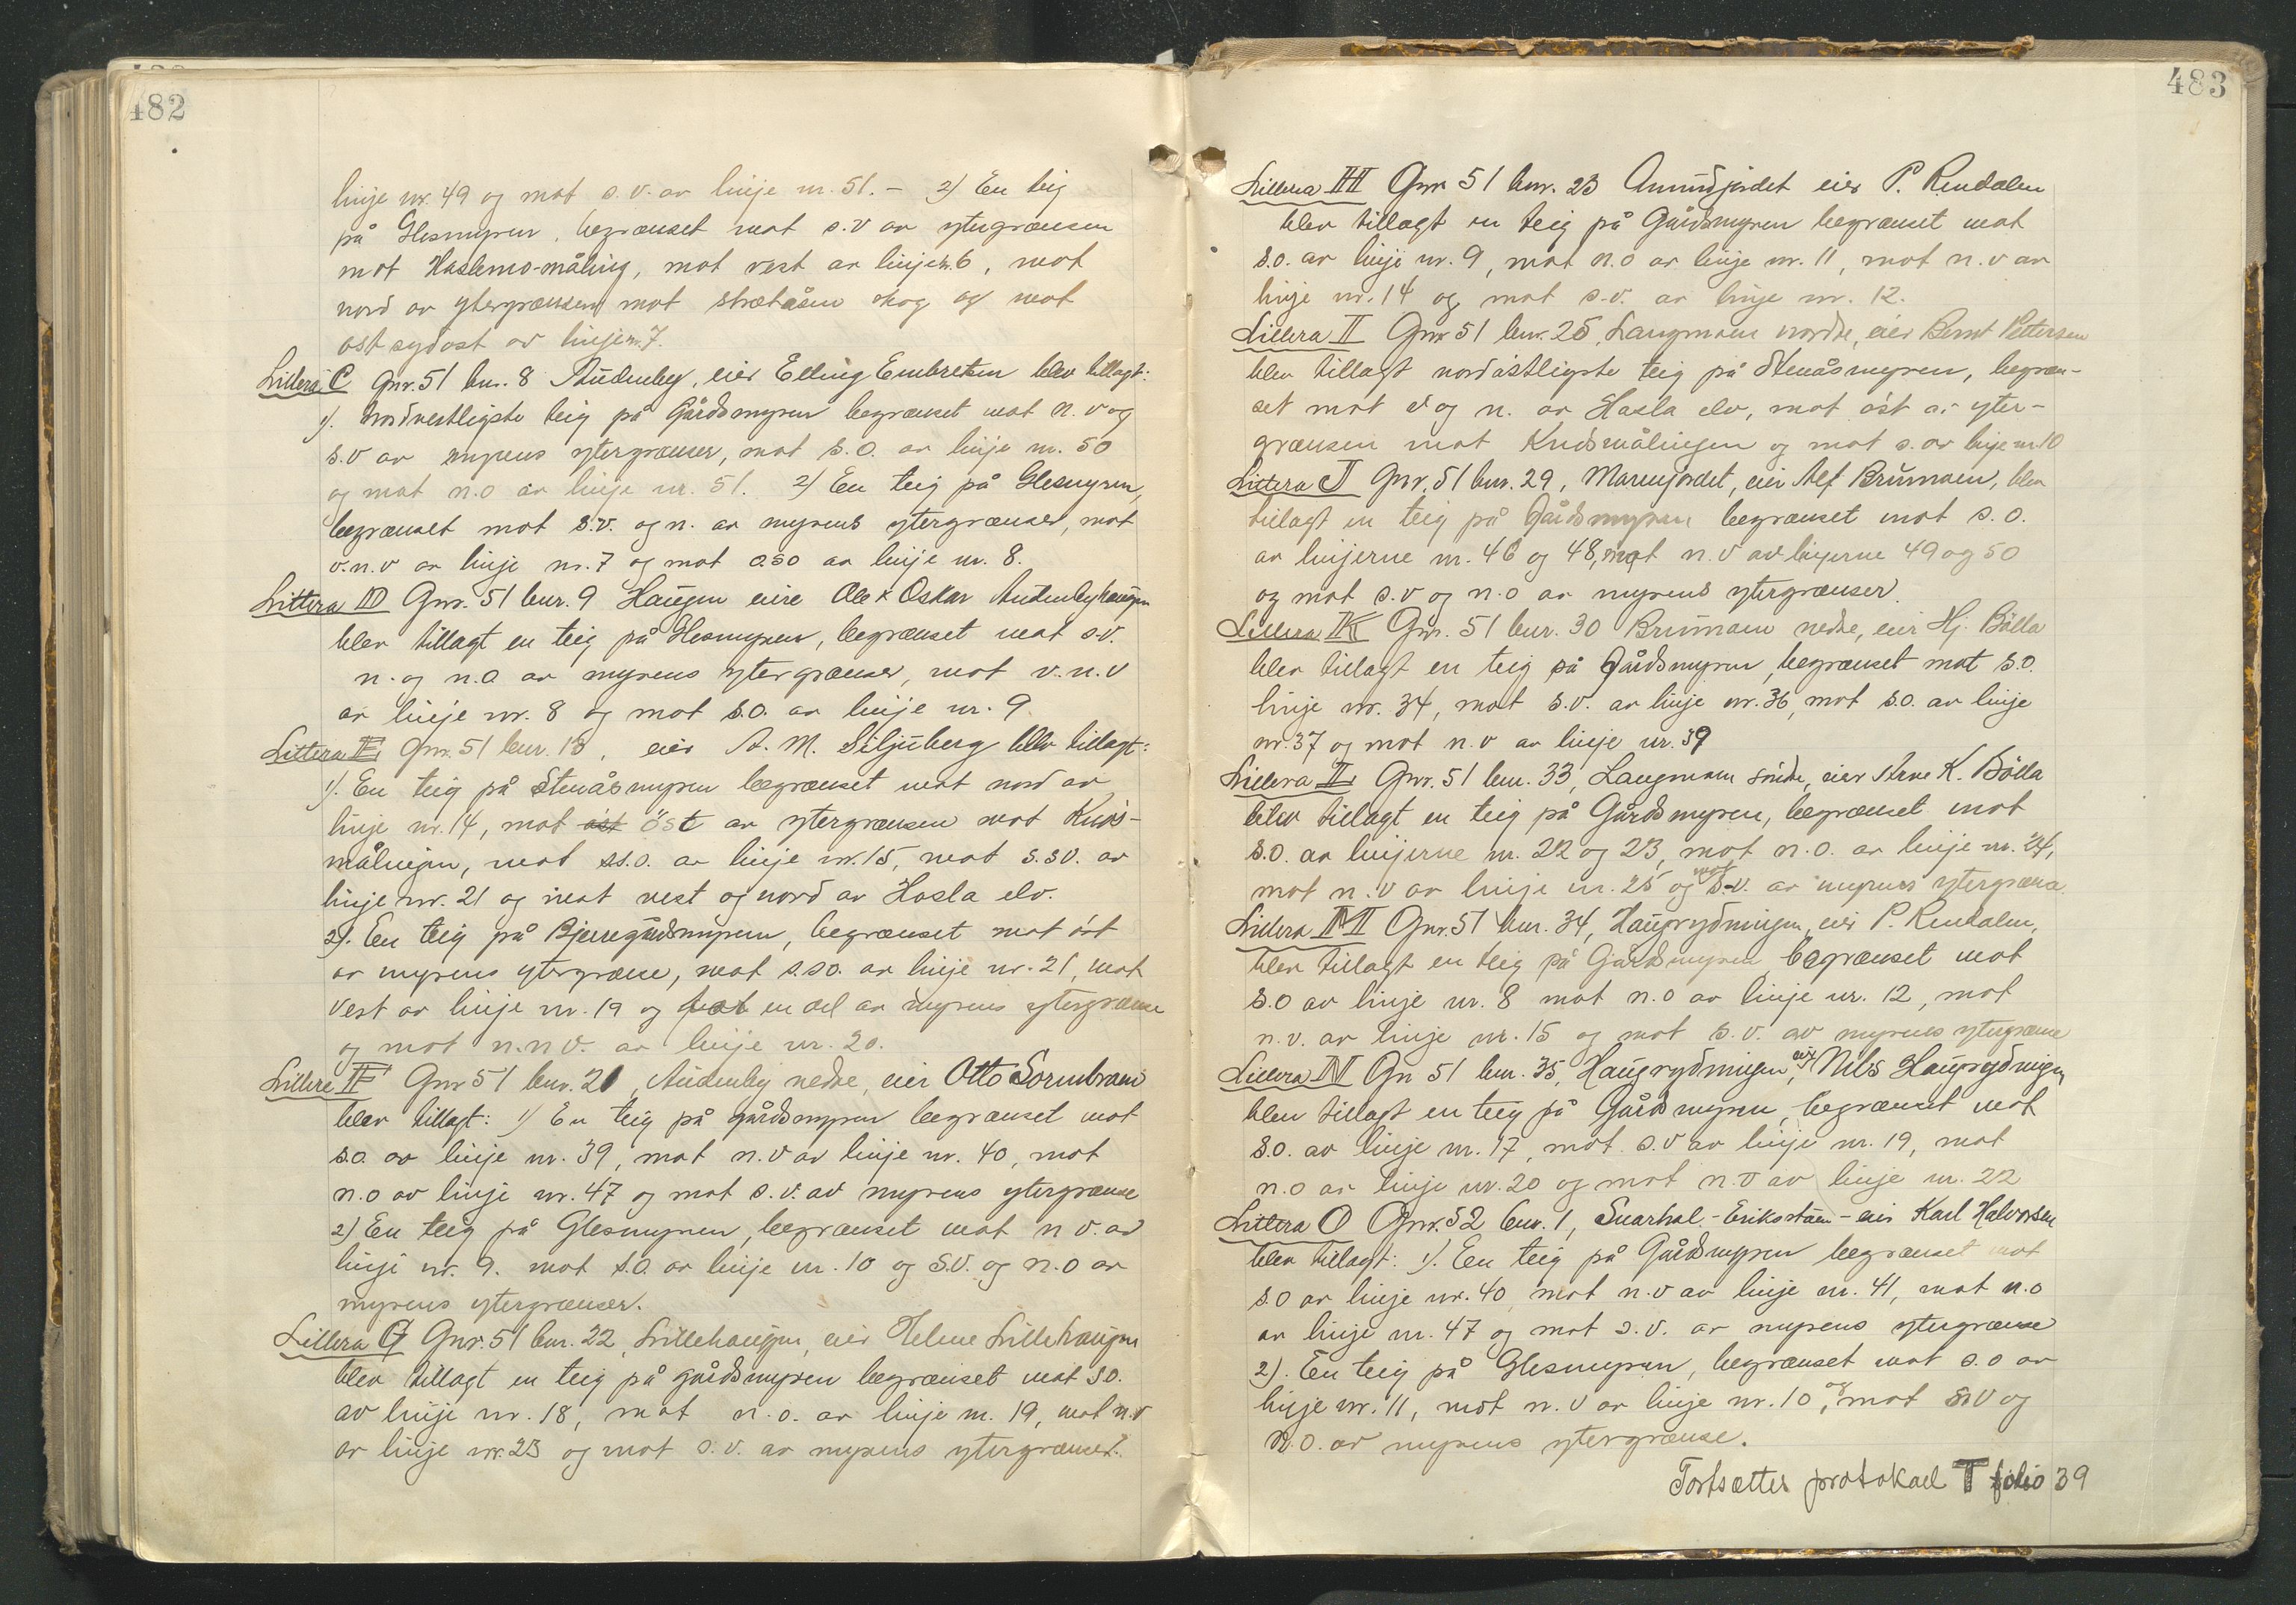 482
linje nr. 49 og mot s.v. av linje nr. 51. – 2) En teig
på Glesmyren, begrænset mot s.v av ytergrænsen
mot Haslemo-måling, mot vest av linje nr. 6, mot
nord av ytergrænsen mot stræteåsen skog og mot
ost sydost av linje nr. 7.
Littera C Gnr. 51 bnr. 8 Audenby, eier Elling Embretsen blev tillagt:
1). Nordvestligste teig på Gårdsmyren begrænset mot n.v og
s.v av myrens ytergrænser, mot s.o. av linje nr. 50
og mot n.o av linje nr. 51. 2) En teig på Glesmyren,
begrænset mot s.v. og n. av myrens ytergrænser, mot
v.n.v av linje nr. 7 og mot oso av linje nr. 8.
Littera D Gnr. 51 bnr. 9 Haugen eiere Ole & Oskar Audenbyhaugen
blev tillagt en teig på Glesmyren, begrænset mot s.v.
n. og n.o av myrens ytergrænser, mot v.n.v
av linje nr. 8 og mot s.o. av linje nr. 9
Littera E Gnr. 51 bnr. 13, eier A. M. Siljuberg blev tillagt:
1). En teig på Stenåsmyren begrænset mot nord av
linje nr. 14, mot øst öst av ytergrænsen mot Knds-
målingen, mot ss.o. av linje nr. 15, mot s.sv. av
linje nr. 21 og mot vest og nord av Hasla elv.
2). En teig på Bjerregårdsmyren, begrænset mot øst
av myrens ytergrænse, mot s.so. av linje nr. 21, mot
vest av linje nr. 19 og en del av myrens ytergrænse
og mot n.n.v. av linje nr. 20.
Littera F Gnr 51 bnr. 21, Audenby nedre, eier Otto Sormbraui
blev tillagt: 1) En teig på gårdsmyren begrænset mot
s.o. av linje nr. 39, mot n.v av linje nr. 40, mot
n.o av linje nr. 47 og mot s.v. av myrens ytergrænse
2) En teig på Glesmyren, begrænset mot n v. av
linje nr. 9. mot s.o. av linje nr. 10 og s.v. og n.o av
myrens ytergrænser.
Littera G Gnr. 51 bnr. 22, Lillehaugen, eier Helene Lillehaugen
blev tillagt en teig på gårdsmyren begrænset mot so.
av linje nr. 18, mot n.o. av linje nr. 19, mot n.v
av linje nr. 23 og mot s.v. av myrens ytergrænser.
483
Littera H Gnr 51 bnr. 23 Amundjordet eier P. Rendalen
blev tillagt en teig på Gårdsmyren begrænset mot
s.o. av linje nr. 9, mot n.o av linje nr. 11, mot n.v av
linje nr. 14 og mot s.v. av linje nr. 12.
Littera I Gnr 51 bnr. 25, Langmoen nordre, eier Bernt Pettersen
blev tillagt nordøstligste teig på Stenåsmyren, begræn-
set mot v og n. av Hasla elv, mot øst av yter-
grænsen mot Kndsmålingen og mot s. av linje nr. 10
Littera J Gnr. 51 bnr. 29, Marenjordet, eier Alf Brumoen, blev
tillagt en teig på Gårdsmyren begrænset mot s.o.
av linjerne nr. 46 og 48, mot n.v av linjerne 49 og 50
og mot s.v og n.o av myrens ytergrænser.
Littera K Gnr. 51 bnr. 30 Brumoen nedre, eier Hj. Bölla
blev tillagt en teig på Gårdsmyren, begrænset mot s.o.
linje nr. 34, mot s.v. av linje nr. 36, mot s.o. av linje
nr. 37 og mot n.v av linje nr. 39
Littera L Gnr. 51 bnr. 33, Langmoen søndre, eier Arne K. Bölla
blev tillagt en teig på Gårdsmyren, begrænset mot
s.o. av linjerne nr. 22 og 23, mot n.o. av linje nr. 24,
mot n.v av linje nr. 25 og mot s.v. av myrens ytergræns
Littera M Gnr. 51 bnr. 34, Haugrydningen, eier P. Rendalen,
blev tillagt en teig på Gårdsmyren begrænset mot
s.o av linje nr. 8 mot n.o av linje nr. 12, mot
n.v. av linje nr. 15 og mot s.v. av myrens ytergrænse
Littera N Gn 51 bnr. 35, Haugrydningen, eier Nils Haugrydningen
blev tillagt en teig på Gårdsmyren, begrænset mot
s.o. av linje nr. 17, mot s.v av linje nr. 19, mot
n.o av linje nr. 20 og mot n.v av linje nr. 22
Littera O Gnr. 52 bnr. 1, Snarhol - Eriksstuen - eier Karl Halvorsen
blev tillagt: 1). En teig på Gårdsmyren begrænset mot
s.o av linje nr. 40, mot n.v av linje nr. 41, mot n.o
av linje nr. 47 og mot s.v. av myrens ytergrænse
2). En teig på Glesmyren, begrænset mot s.o av
linje nr. 11, mot n.v av linje nr. 10, og mot s.v og
n.o. av myrens ytergrænse.
Fortsætter protokoll T folio 39